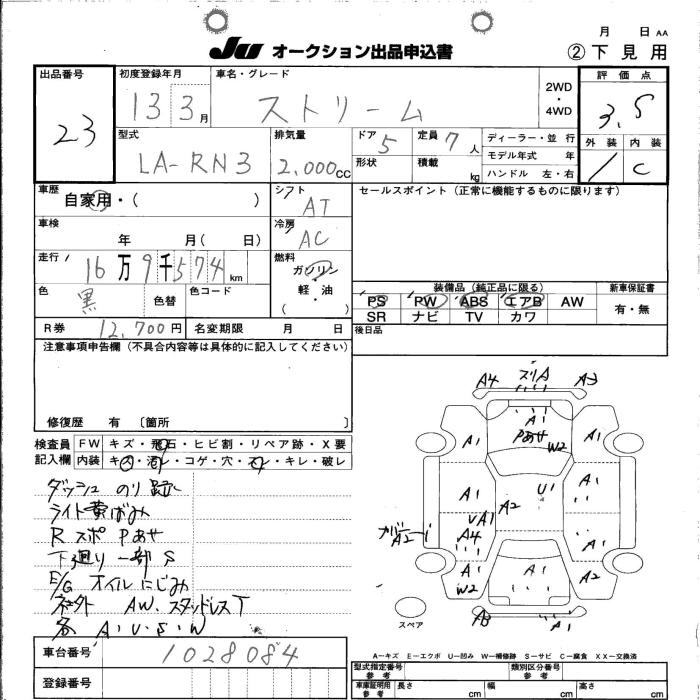 月 日 AA
JU オークション出品申込書
② 下見用
出品番号 23
初度登録年月 13 3月
車名・グレード ストリーム
2WD・4WD
評価点 3.5
外装 / 内装 C
型式 LA-RN3
排気量 2,000cc
ドア 5
定員 7人
ディーラー・並行
モデル年式 年
ハンドル 左・右
形状
積載 kg
車歴 自家用・( )
シフト AT
セールスポイント(正常に機能するものに限ります)
車検 年 月( 日)
冷房 AC
走行 16万9千574km
燃料 ガソリン・軽・油( )
色 黒 色替
色コード
装備品(純正品に限る)
PS PW ABS エアB AW
SR ナビ TV カワ
新車保証書 有・無
R券 12,700円
名変期限 月 日
後日品
注意事項申告欄(不具合内容等は具体的に記入してください)
修復歴 有 〔箇所 〕
検査員記入欄
FW キズ・飛石・ヒビ割・リペア跡・X要
内装 キズ・汚レ・コゲ・穴・スレ・キレ・破レ
ダッシュ のり跡
ライト黄ばみ
Rスポ Pあせ
下廻り一部S
E/G オイルにじみ
AW.スタッドレスT
各 A・U・S・W
A4 スリA A3
A1
Pあせ
W2
A1 A1
A1 U1 A1
A2
UA1
A4
カバー
A2
A1
A1 A1 A2
W2
A3 A1
スペア
A―キズ E―エクボ U―凹み W―補修跡 S―サビ C―腐食 XX―交換済
車台番号 1028084
登録番号
型式指定番号 参考
類別区分番号 参考
車庫証明用 参考 長さ cm 幅 cm 高さ cm